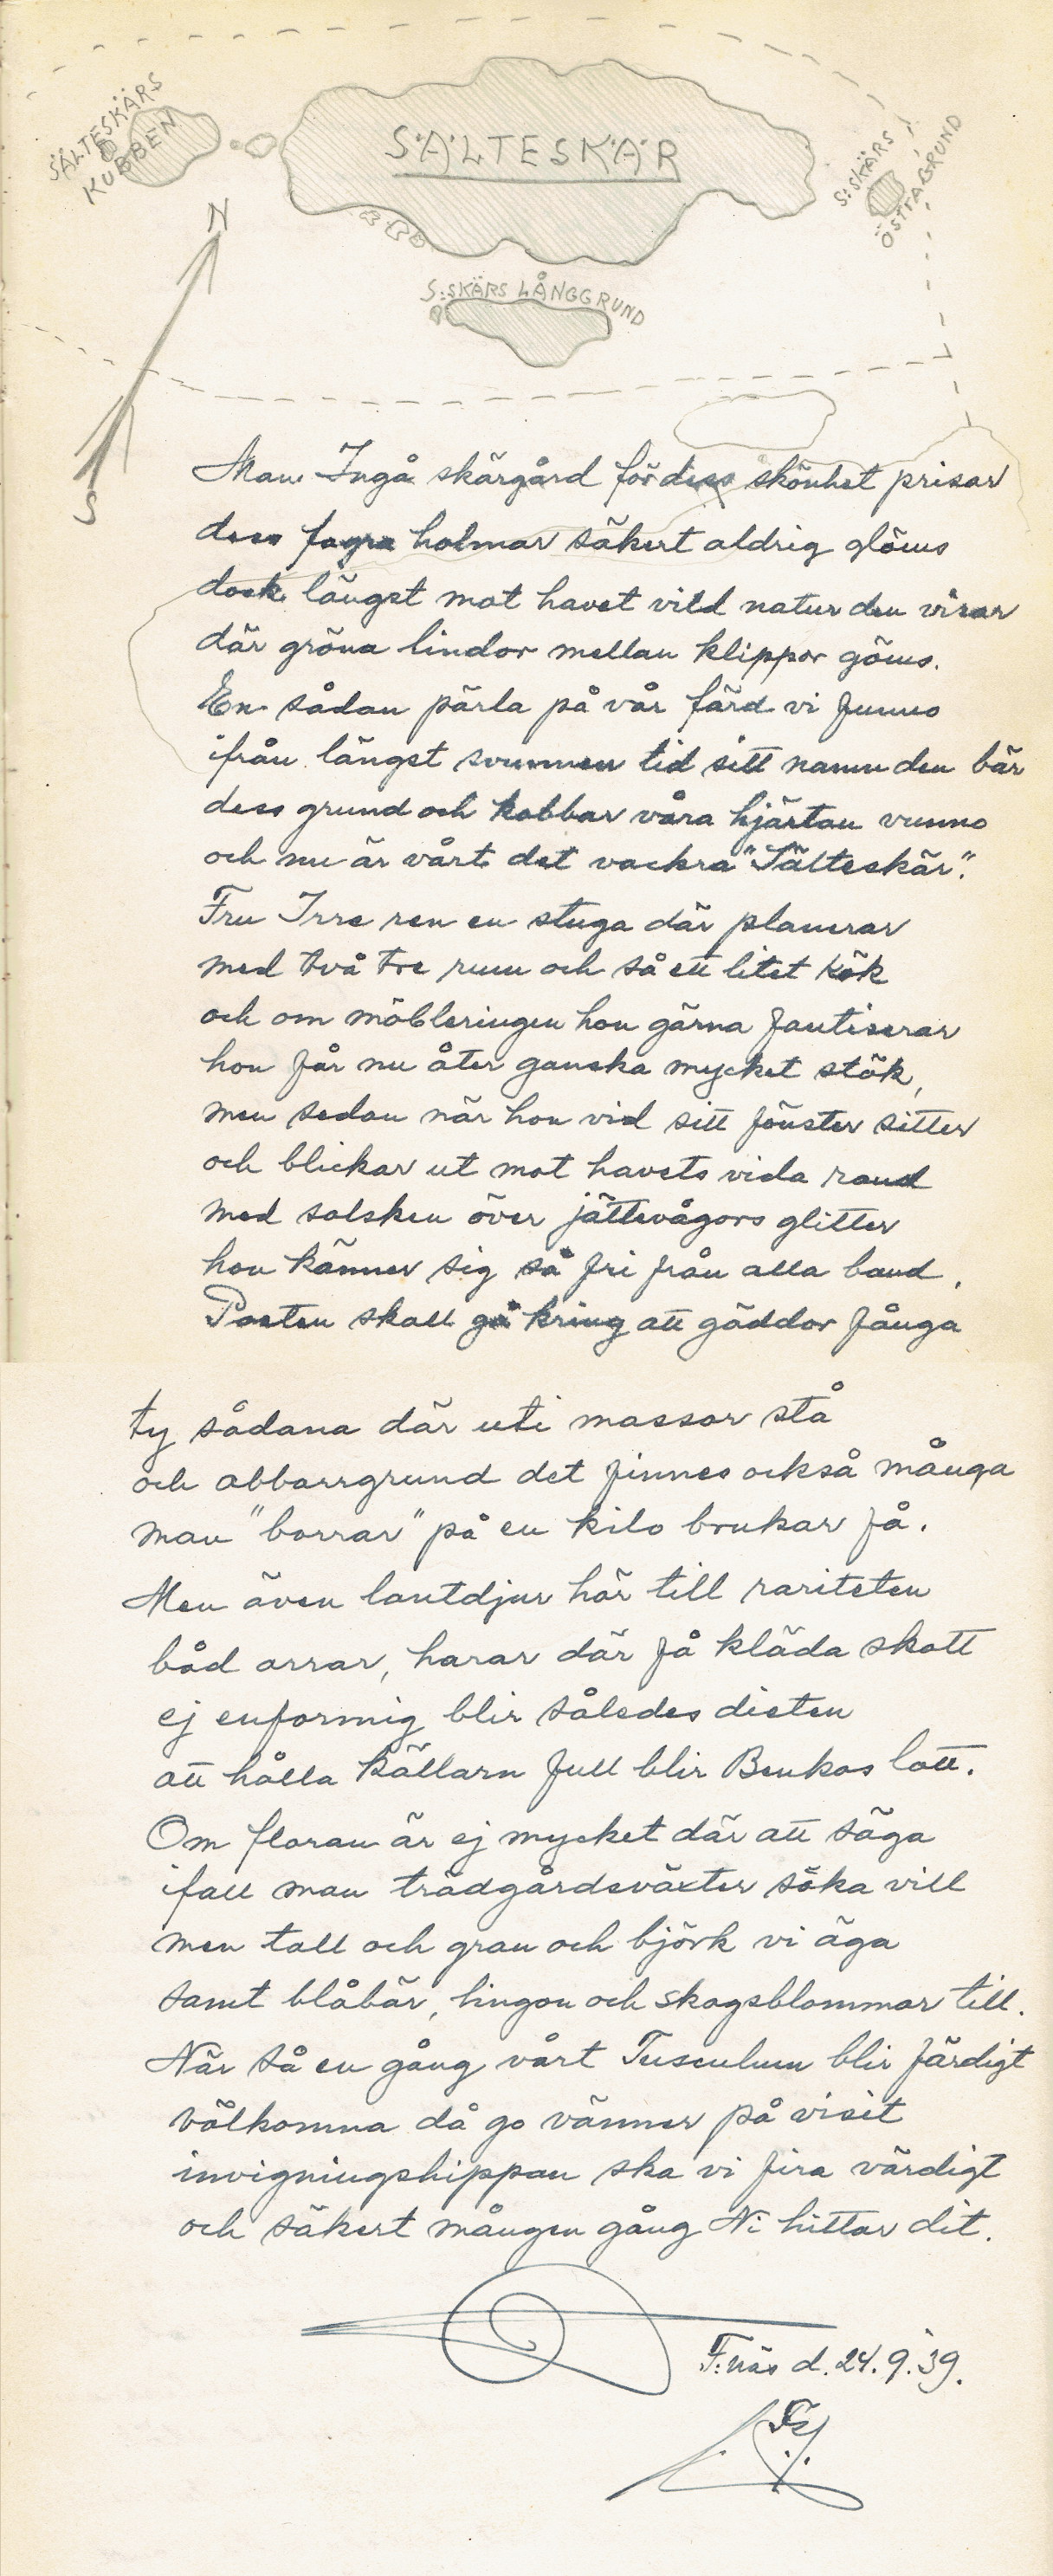 SÄLTESKÄRS
KUBBEN
SÄLTESKÄR
S:SKÄRS
ÖSTRAGRUND
N
S:SKÄRS LÅNGGRUND
S
Man Ingå skärgård för dess skönhet prisar
dess fagra holmar säkert aldrig glöms
dock längst mot havet vild natur den visar
där gröna lindor mellan klippor göms.
En sådan pärla på vår färd vi funno
ifrån längst svunnen tid sitt namn den bär
dess grund och kobbar våra hjärtan vunno
och nu är vårt det vackra "Sälteskär".
Fru Irre ren en stuga där planerar
med två tre rum och så ett litet kök
och om möbleringen hon gärna fantiserar
hon får nu åter ganska mycket stök,
men sedan när hon vid sitt fönster sitter
och blickar ut mot havets vida rand
med solsken över jättevågors glitter
hon känner sig så fri från alla band.
Poeten skall gå kring att gäddor fånga
ty sådana där uti massor stå
och abborrgrund det finnes också många
man "borrar" på en kilo brukar få.
Men även lantdjur hör till rariteten
båd orrar, harar där få kläda skott
ej enformig blir således dieten
att hålla källarn full blir Benkas lott.
Om floran är ej mycket där att säga
ifall man trädgårdsväxter söka vill
men tall och gran och björk vi äga
samt blåbär, lingon och skogsblommor till.
När så en gång vårt Tusculum blir färdigt
välkomna då go vänner på visit
invigningshippan ska vi fira värdigt
och säkert mången gång Ni hittar dit.
F:näs d. 24.9.39.